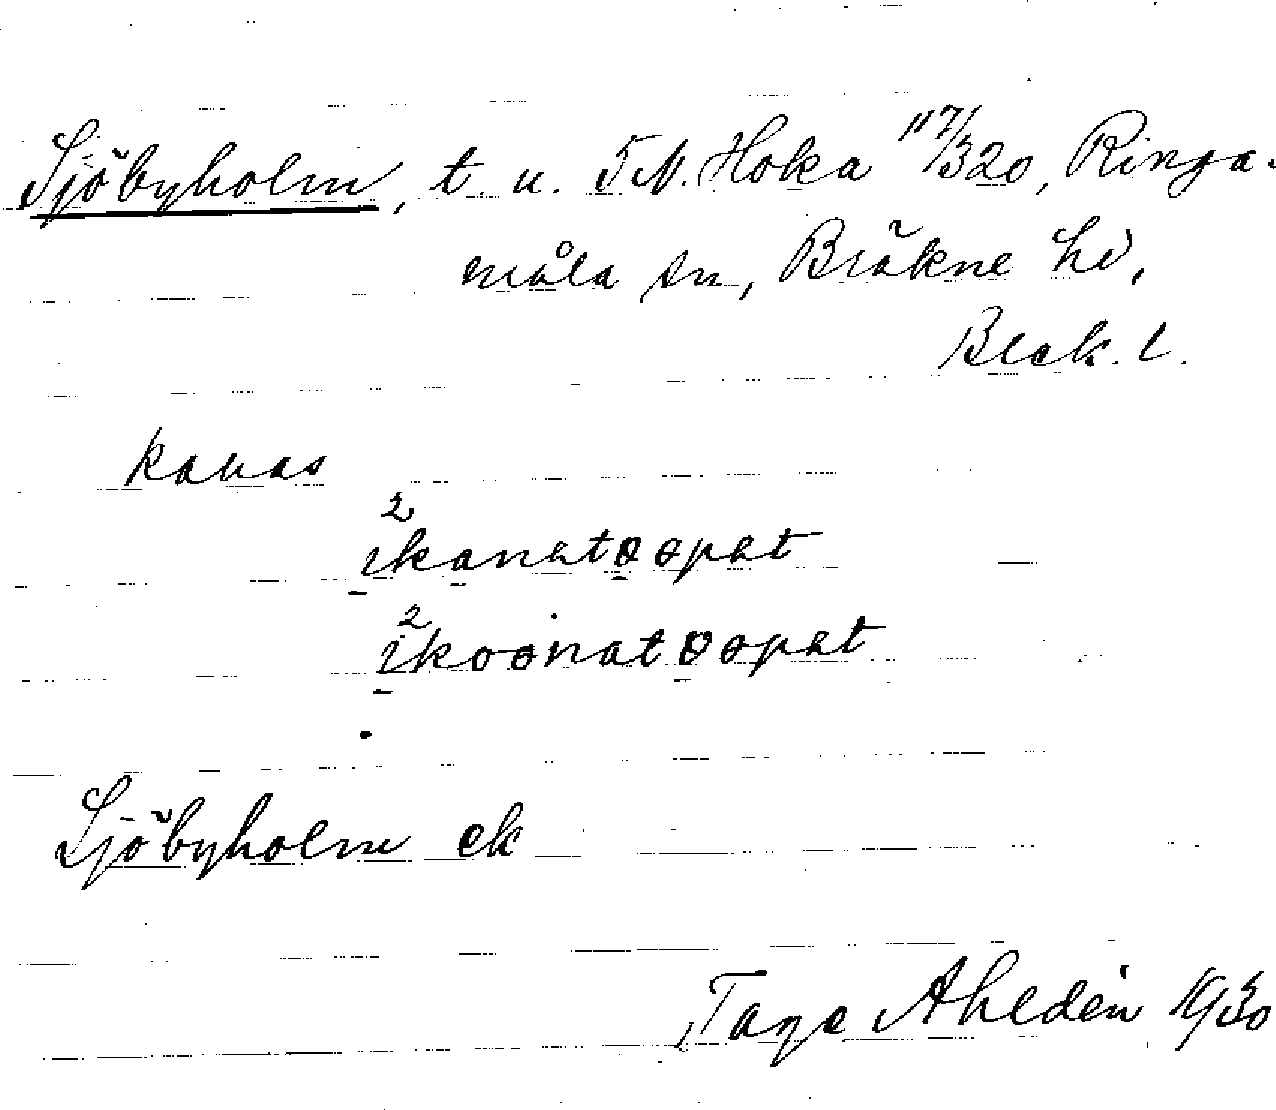 Sjöbyholm, t. u. 5 N. Hoka 117/320, Ringa-
måla sn, Bräkne hd,
Blek. l.
kauas
ikanatoopat
2
ikoonatoopat
2
Sjöbyholm ek
Tage Ahldén 1930